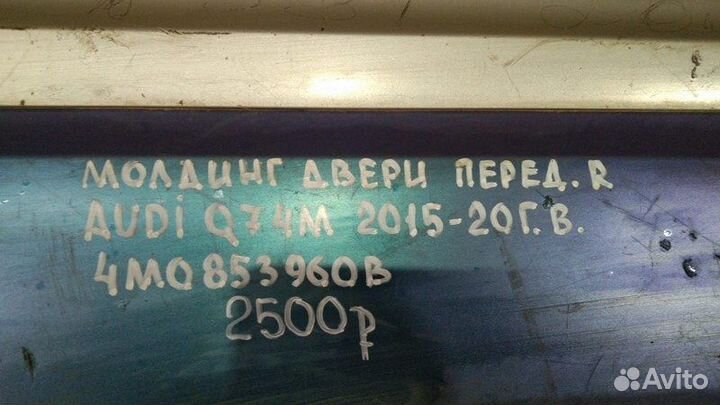 МОЛДИНГ ДВЕРИ ПЕРЕД. R
AUDI Q7 4M 2015-20Г.В.
4M0853960B
2500р
Avito